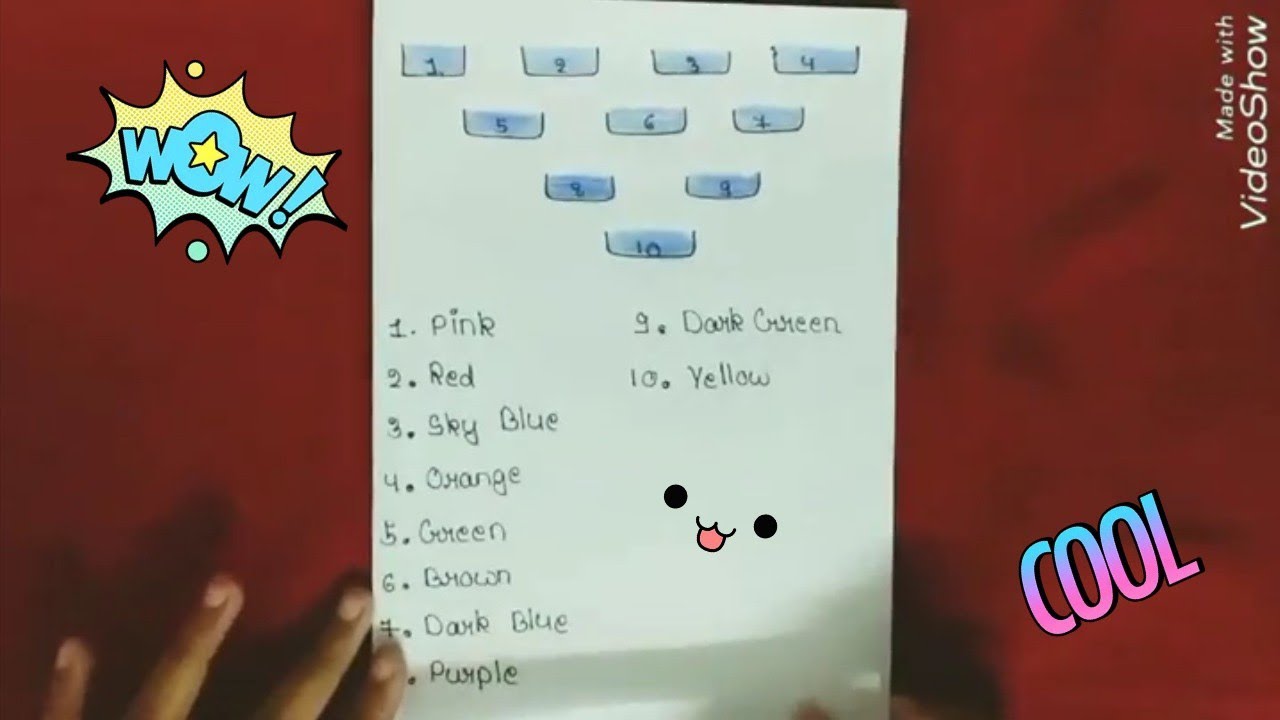 WOW!
Made with
VideoShow
1. 2 3 4
5 6 7
8 9
10
1. Pink
2. Red
3. Sky Blue
4. Orange
5. Green
6. Brown
7. Dark Blue
. Purple
9. Dark Green
10. Yellow
COOL